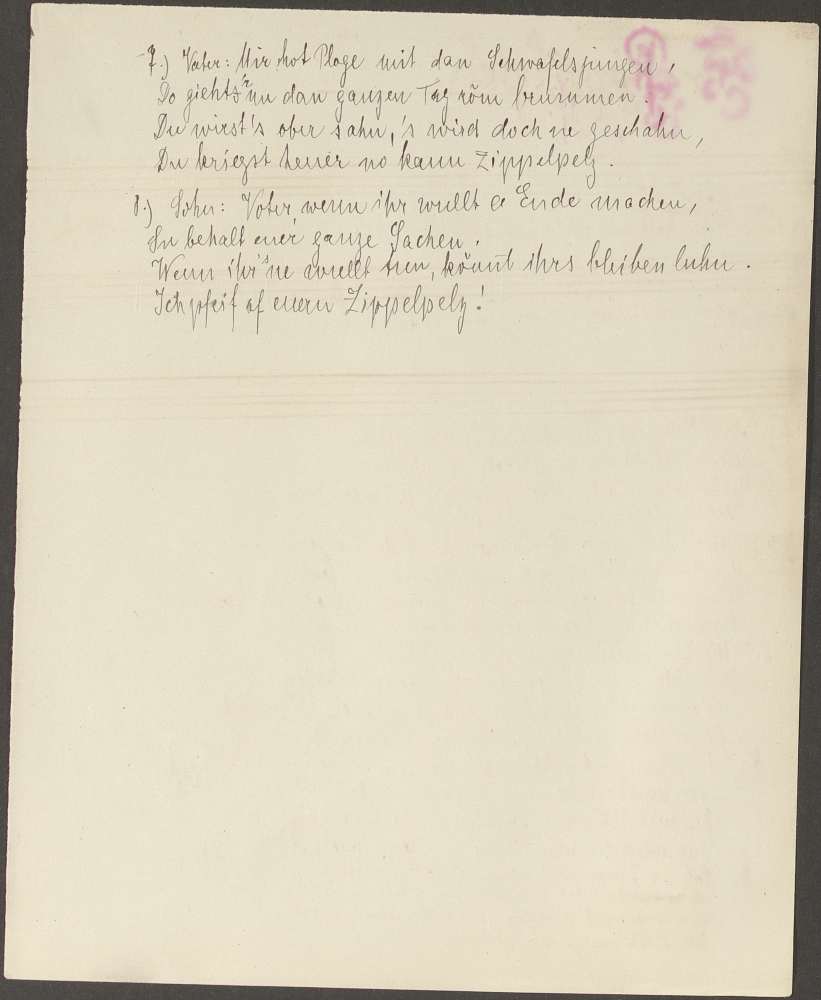 7.) Vater: Mir hot Ploge mit dan Schwafelsjungen,
Do gieht's nu dan ganzen Tag röm brummen.
Du wirst's ober sahn, 's wird doch ne geschahn,
Du kriegst heuer no kann Zippelpelz.
8.) Sohn: Voter wenn ihr wullt e Ende machen,
Su behalt euer ganze Sachen.
Wenn ihr's ne wullt tun, könnt ihrs bleiben luhn.
Ich pfeif af euern Zippelpelz!